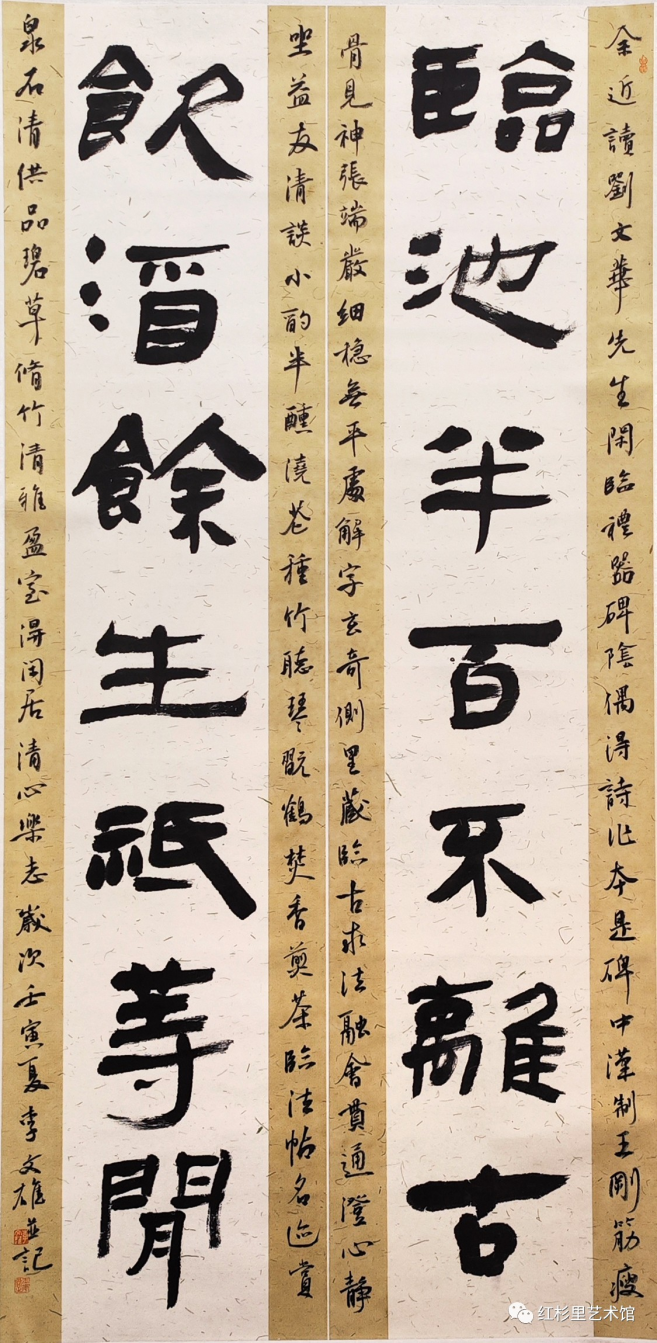 余近讀劉文華先生閑臨禮器碑陰偶得詩作本是碑中漢制王剛筋瘦
臨池半百不離古
骨見神張端嚴細穩無平處解字玄奇側里藏臨古求法融會貫通澄心靜
坐益友清談小酌半醺澆花種竹聽琴翫鶴焚香煎茶臨法帖名迹賞
飲酒餘生祇等閒
泉石清供品碧草脩竹清雅盈室得閑居清心樂志歲次壬寅夏李文雄並記
红杉里艺术馆